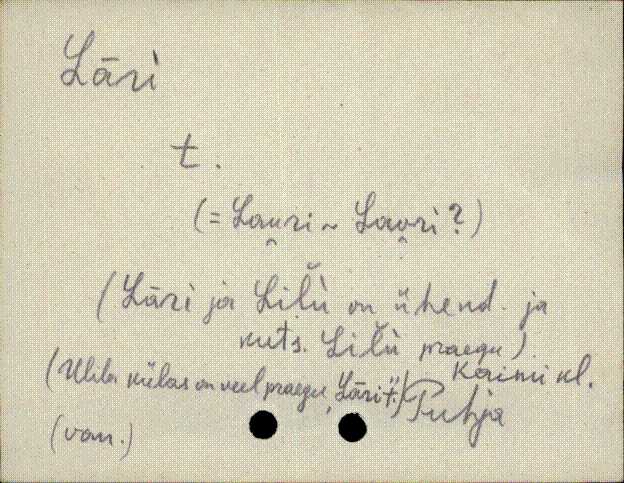 Lāri
t.
(= Lauri ~ Laori?)
(Lāri ja Lil̆ù on ühend. ja
kuts. Lil̆ù praegu)
(Ulila külas on veel praegu "Lāri" t.)
Kaimi kl.
Puhja
(van.)